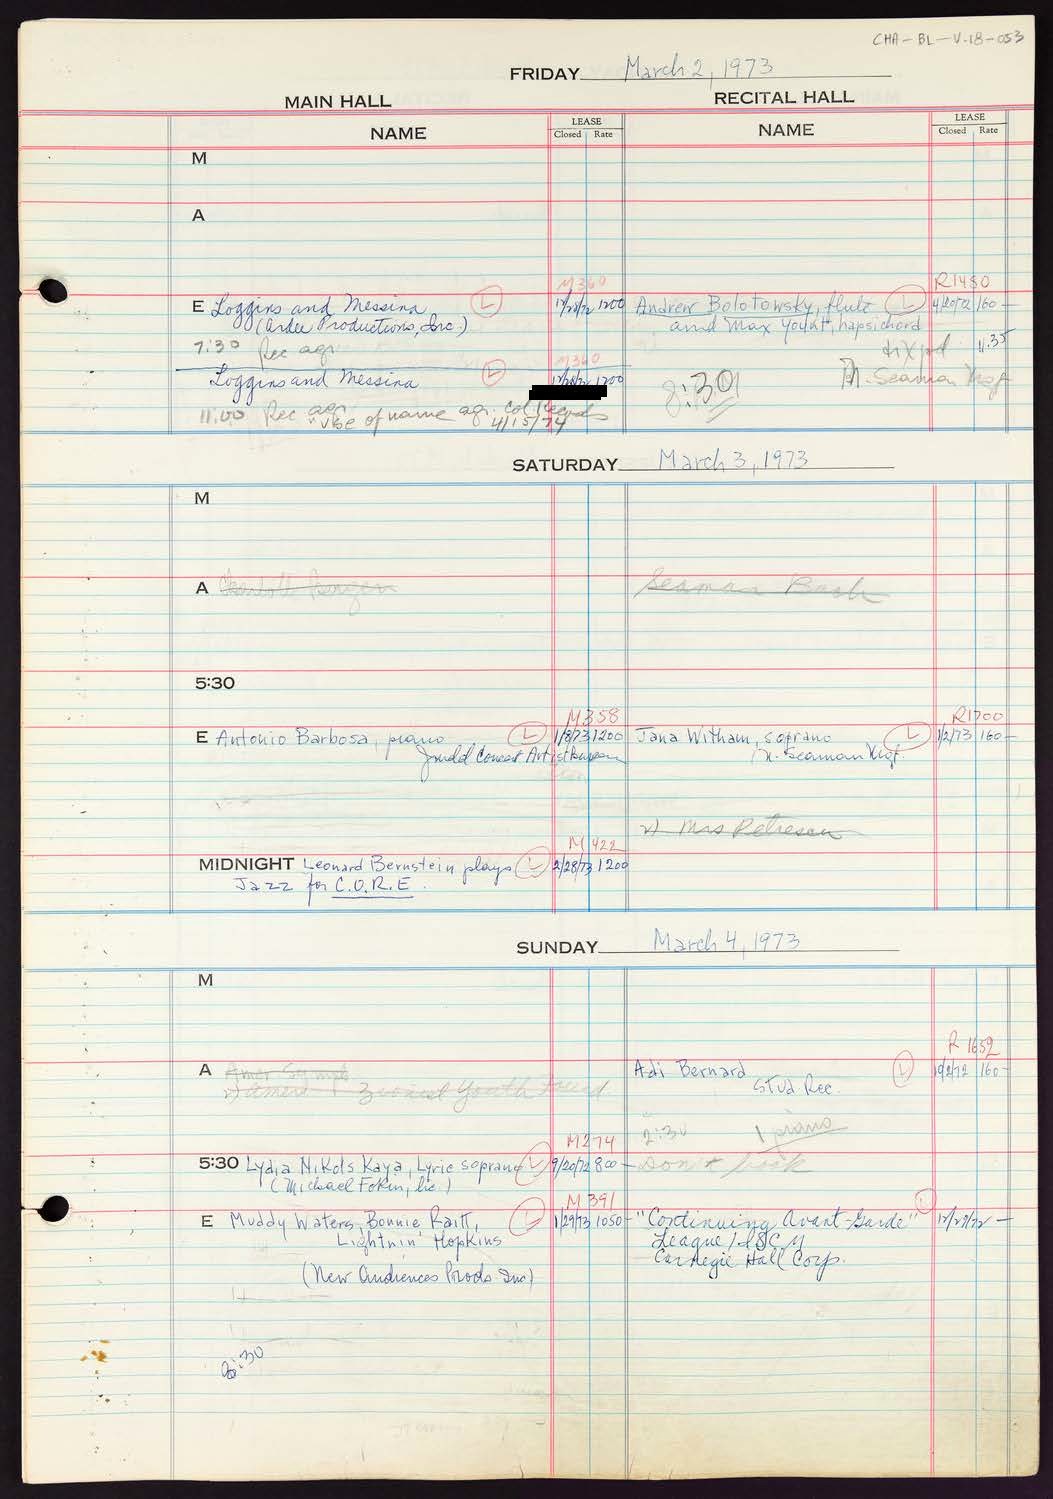 CHA-BL-V.18-053
FRIDAY March 2, 1973
MAIN HALL RECITAL HALL
NAME LEASE Closed Rate NAME LEASE Closed Rate
M
A
M360 R1480
E Loggins and Messina L 12/28/72 1200 Andrew Bolotowsky, flute L 4/20/72 160-
(Ardee Productions, Inc.) and Max Yount, hapsichord
7:30 Rec agr. tix pd 11.35
M360
Loggins and Messina L 12/28/72 1200 8:30 N. Seaman Mgt
11:00 Rec agr. Use of name agr. Col. Records
4/15/74
SATURDAY March 3, 1973
M
A Seaman Bach
5:30
M358 R1700
E Antonio Barbosa, piano L 1/8/73 1200 Jana Witham, soprano L 1/2/73 160-
Judd Concert Artist Bureau N. Seaman Mgt.
2) Mrs Petrescu
M422
MIDNIGHT Leonard Bernstein plays L 2/28/73 1200
Jazz for C.O.R.E.
SUNDAY March 4, 1973
M
R 1652
A Amer Symph Adi Bernard L 10/2/72 160-
2) Amer Zionist Youth Stud Rec.
2:30 1 piano
M274
5:30 Lydia Nikols Kaya, Lyric soprano L 9/20/72 800- Don't book
(Michael Fokin, Inc.)
M391 L
E Muddy Waters, Bonnie Raitt, L 1/29/73 1050- "Continuing Avant-Garde" 12/27/72 -
Lightnin' Hopkins League/ISCM
Carnegie Hall Corp.
(New Audiences Prods Inc)
8:30